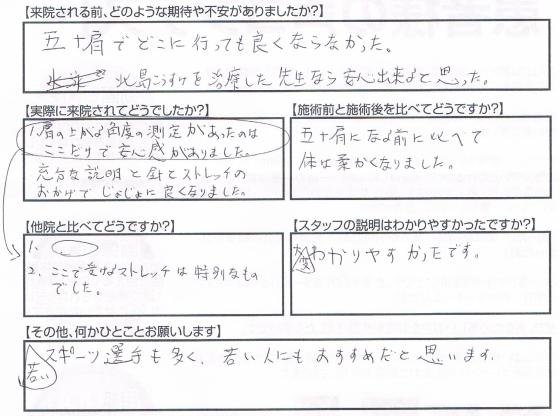 【来院される前、どのような期待や不安がありましたか?】
五十肩でどこに行っても良くならなかった。
北島こうすけを治療した先生なら安心出来ると思った。
【実際に来院されてどうでしたか?】
1.肩の上がる角度の測定があったのは
ここだけで安心感がありました。
充分な説明と針とストレッチの
おかげでじょじょに良くなりました。
【施術前と施術後を比べてどうですか?】
五十肩になる前に比べて
体は柔かくなりました。
【他院と比べてどうですか?】
1.
2.ここで受けるストレッチは特別なもの
でした。
【スタッフの説明はわかりやすかったですか?】
わかりやすかったです。
【その他、何かひとことお願いします】
スポーツ選手も多く、若い人にもおすすめだと思います。
若い